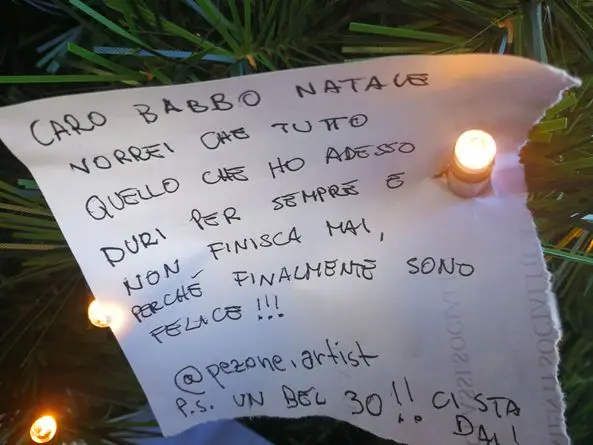 CARO BABBO NATALE
NORREI CHE TUTTO
QUELLO CHE HO ADESSO
DURI PER SEMPRE E
NON FINISCA MAI,
PERCHÉ FINALMENTE SONO
FELICE!!!
@pezone.artist
P.S. UN BEL 30!! CI STA
DAI